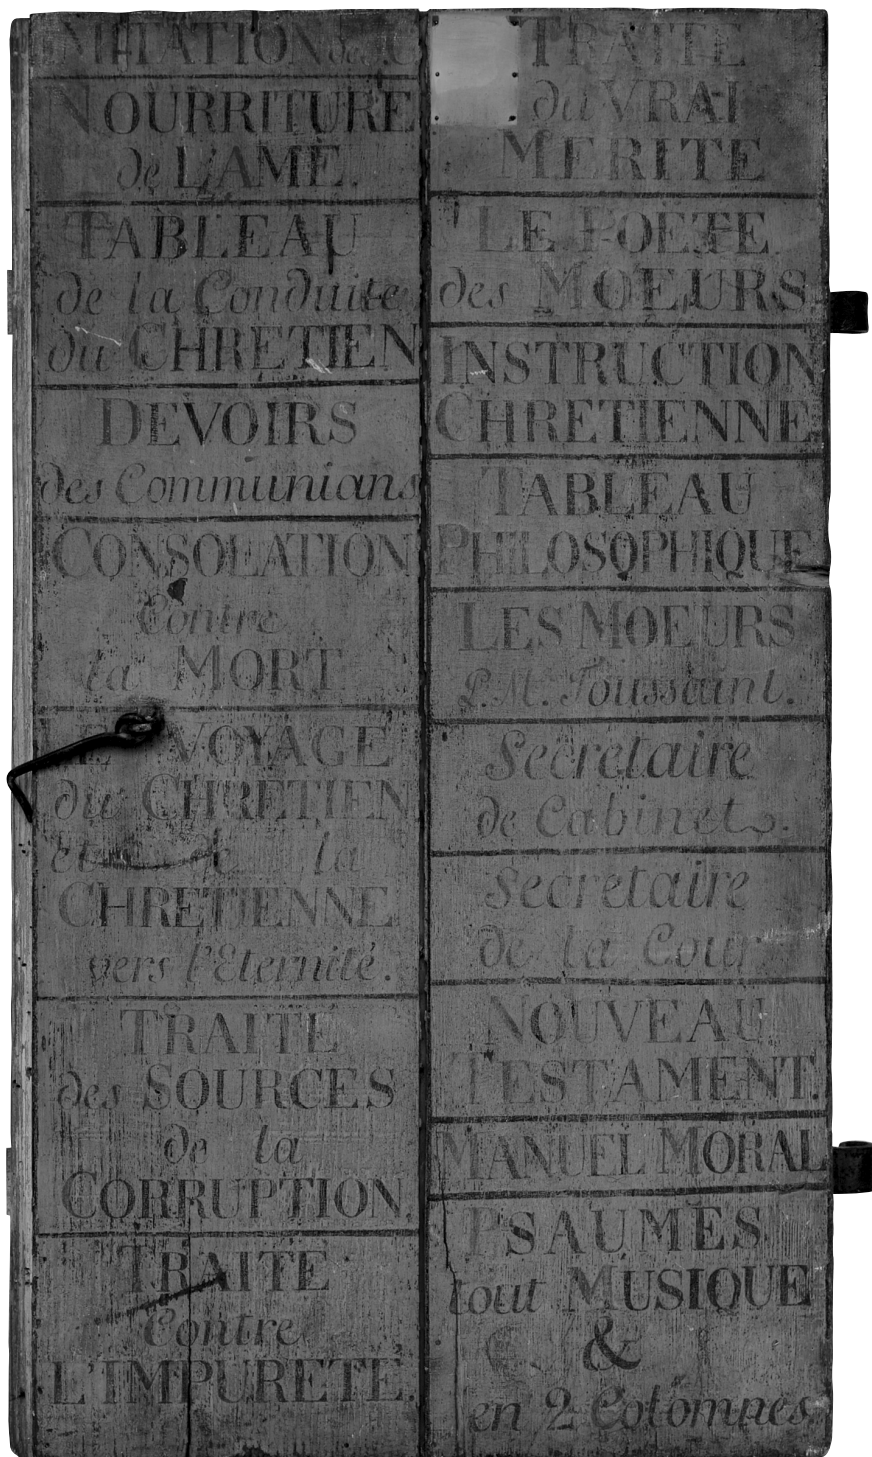 IMITATION de J.C
NOURRITURE
de L'AME.
TABLEAU
de la Conduite
du CHRETIEN
DEVOIRS
des Communians
CONSOLATION
Contre
la MORT
LE VOYAGE
du CHRETIEN
et de la
CHRETIENNE
vers l'Eternité.
TRAITE
des SOURCES
de la
CORRUPTION.
TRAITE
Contre
L'IMPURETÉ.
TRAITE
du VRAI
MERITE
LE POETE
des MOEURS
INSTRUCTION
CHRETIENNE
TABLEAU
PHILOSOPHIQUE
LES MOEURS
P. Mr. Toussaint.
Secretaire
de Cabinet.
Secretaire
de la Cour
NOUVEAU
TESTAMENT.
MANUEL MORAL
PSAUMES
tout MUSIQUE
&
en 2 Colomnes.